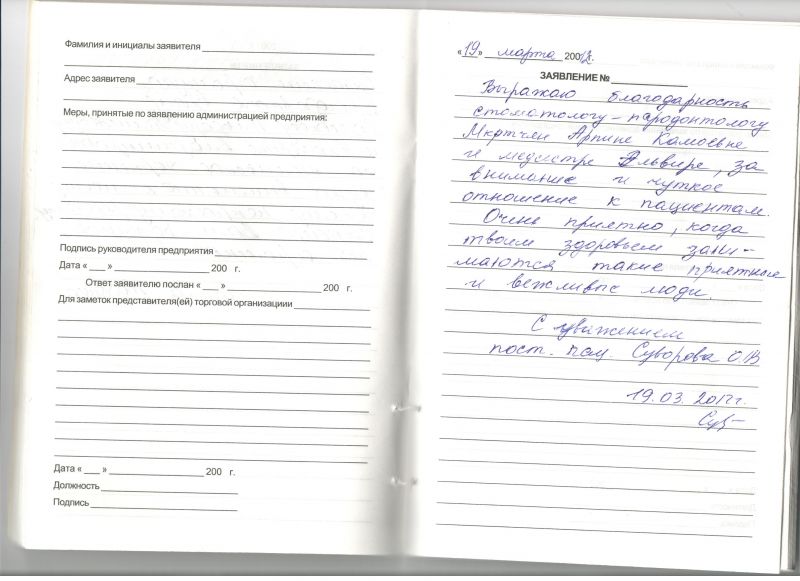 Фамилия и инициалы заявителя
Адрес заявителя
Меры, принятые по заявлению администрацией предприятия:
Подпись руководителя предприятия
Дата « » 200 г.
Ответ заявителю послан « » 200 г.
Для заметок представителя(ей) торговой организациии
Дата « » 200 г.
Должность
Подпись
«19» марта 2012г.
ЗАЯВЛЕНИЕ №
Выражаю благодарность
стоматологу-пародонтологу
Мкртчен Арпине Камоевне
и медсестре Эльвире, за
внимание и чуткое
отношение к пациентам.
Очень приятно, когда
твоим здоровьем зани-
маются такие приятные
и вежливые люди.
С уважением
пост. пац. Суворова О.В
19.03. 2012г.